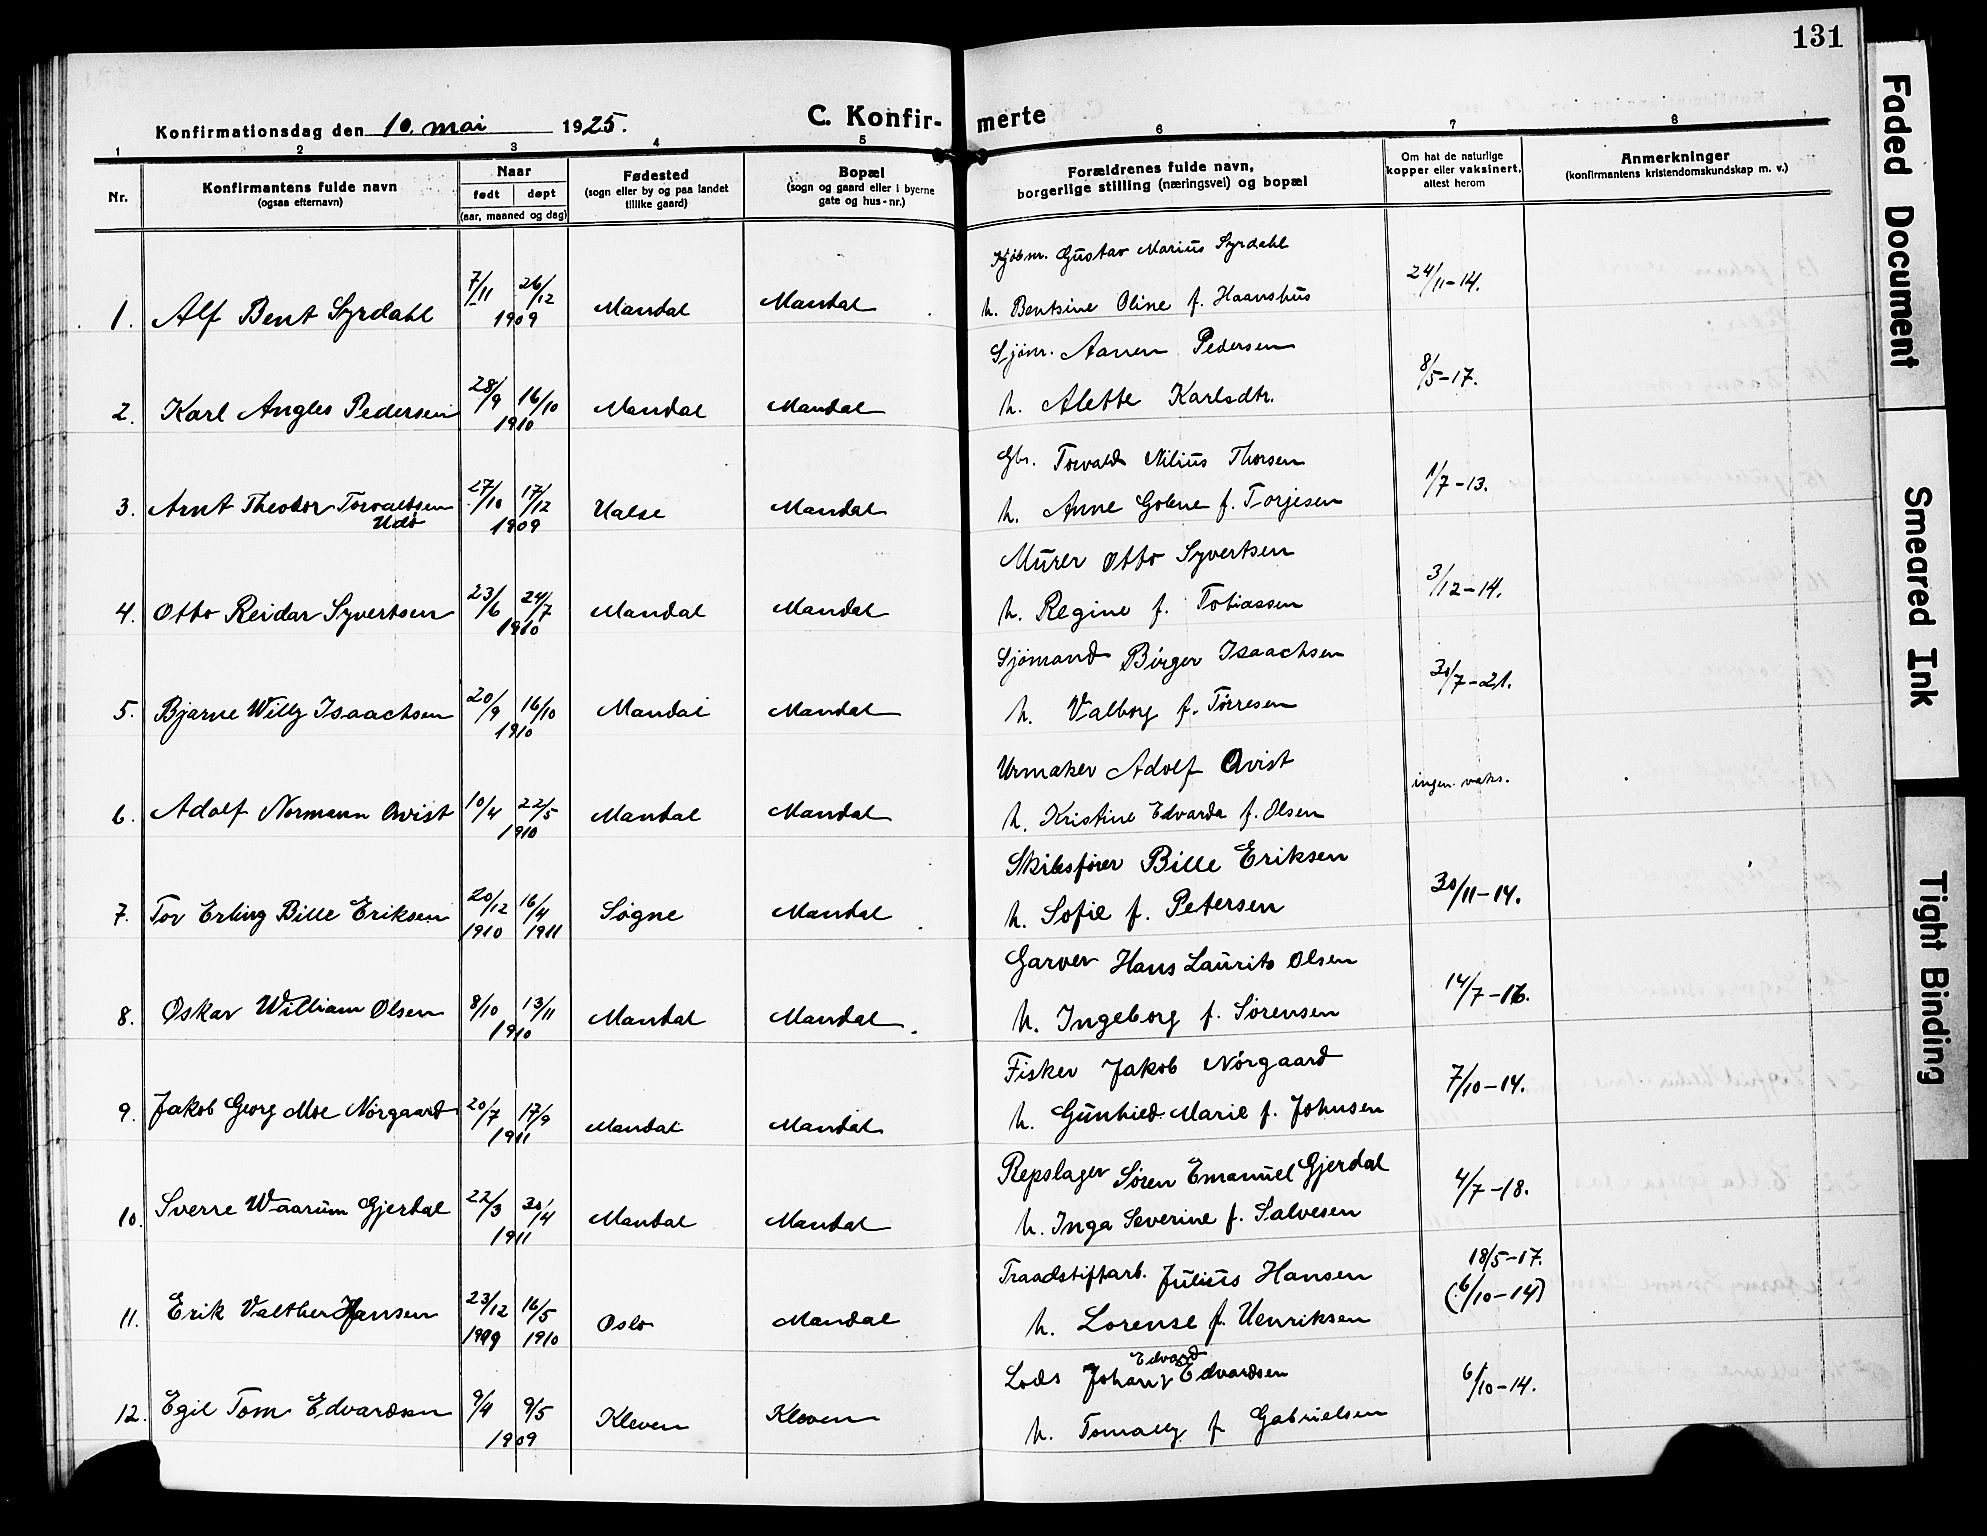 131
Konfirmationsdag den 10. mai 1925.
C. Konfir- merte
1 2 3 4 5 6 7 8
Nr.
Konfirmantens fulde navn
(ogsaa efternavn)
Naar
født døpt
(aar, maaned og dag)
Fødested
(sogn eller by og paa landet
tillike gaard)
Bopæl
(sogn og gaard eller i byerne
gate og hus-nr.)
Forældrenes fulde navn,
borgerlige stilling (næringsvei) og bopæl
Om hat de naturlige
kopper eller vaksinert,
attest herom
Anmerkninger
(konfirmantens kristendomskundskap m. v.)
Kjøbm. Gustav Marius Syrdahl
1. Alf Bent Syrdahl 7/11 26/12 1909 Mandal Mandal h. Bentsine Oline f. Haanshus 24/11-14.
Sjøm. Aanen Pedersen
2. Karl Angles Pedersen 28/9 16/10 1910 Mandal Mandal h. Alette Karlsdtr. 8/5-17.
Gbr. Torvald Nilius Thorsen
3. Arnt Theodor Torvaldsen Udø 27/10 17/12 1909 Halse Mandal h. Anne Golene f. Torjesen 1/7-13.
Murer Otto Syvertsen
4. Otto Reidar Syvertsen 23/6 24/7 1910 Mandal Mandal h. Regine f. Tobiassen 3/12-14.
Sjømand Birger Isaachsen
5. Bjarne Willy Isaachsen 20/9 16/10 1910 Mandal Mandal h. Valborg f. Tørresen 30/7-21.
Urmaker Adolf Qvist
6. Adolf Normann Qvist 10/4 22/5 1910 Mandal Mandal h. Kristine Edvarda f. Olsen ingen vaks.
Skibsfører Bille Eriksen
7. Tor Erling Bille Eriksen 20/12 1910 16/4 1911 Søgne Mandal h. Sofie f. Petersen 30/11-14.
Garver Hans Laurits Olsen
8. Oskar William Olsen 8/10 13/11 1910 Mandal Mandal. h. Ingeborg f. Sørensen 14/7-16.
Fisker Jakob Nørgaard
9. Jakob Georg Moe Nørgaard 20/7 17/9 1911 Mandal Mandal h. Gunhild Marie f. Johnsen 7/10-14.
Repslager Søren Emanuel Gjerdal
10. Sverre Waarum Gjerdal 22/3 30/4 1911 Mandal Mandal h. Inga Severine f. Salvesen 4/7-18.
Traadstiftarb. Julius Hansen 18/5-17.
11. Erik Valther Hansen 23/12 1909 16/5 1910 Oslo Mandal h. Lorense f. Henriksen (6/10-14)
Lods Johan Edvard Edvardsen
12. Egil Tom Edvardsen 9/4 9/5 1909 Kleven Kleven h. Tomally f. Gabrielsen 6/10-14.
Faded Document
Smeared Ink
Tight Binding